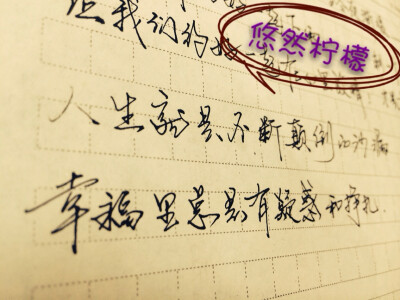 但我们约好
悠然柠檬
人生就是不断颠倒的沟
幸福里总是有疑惑和挣扎.